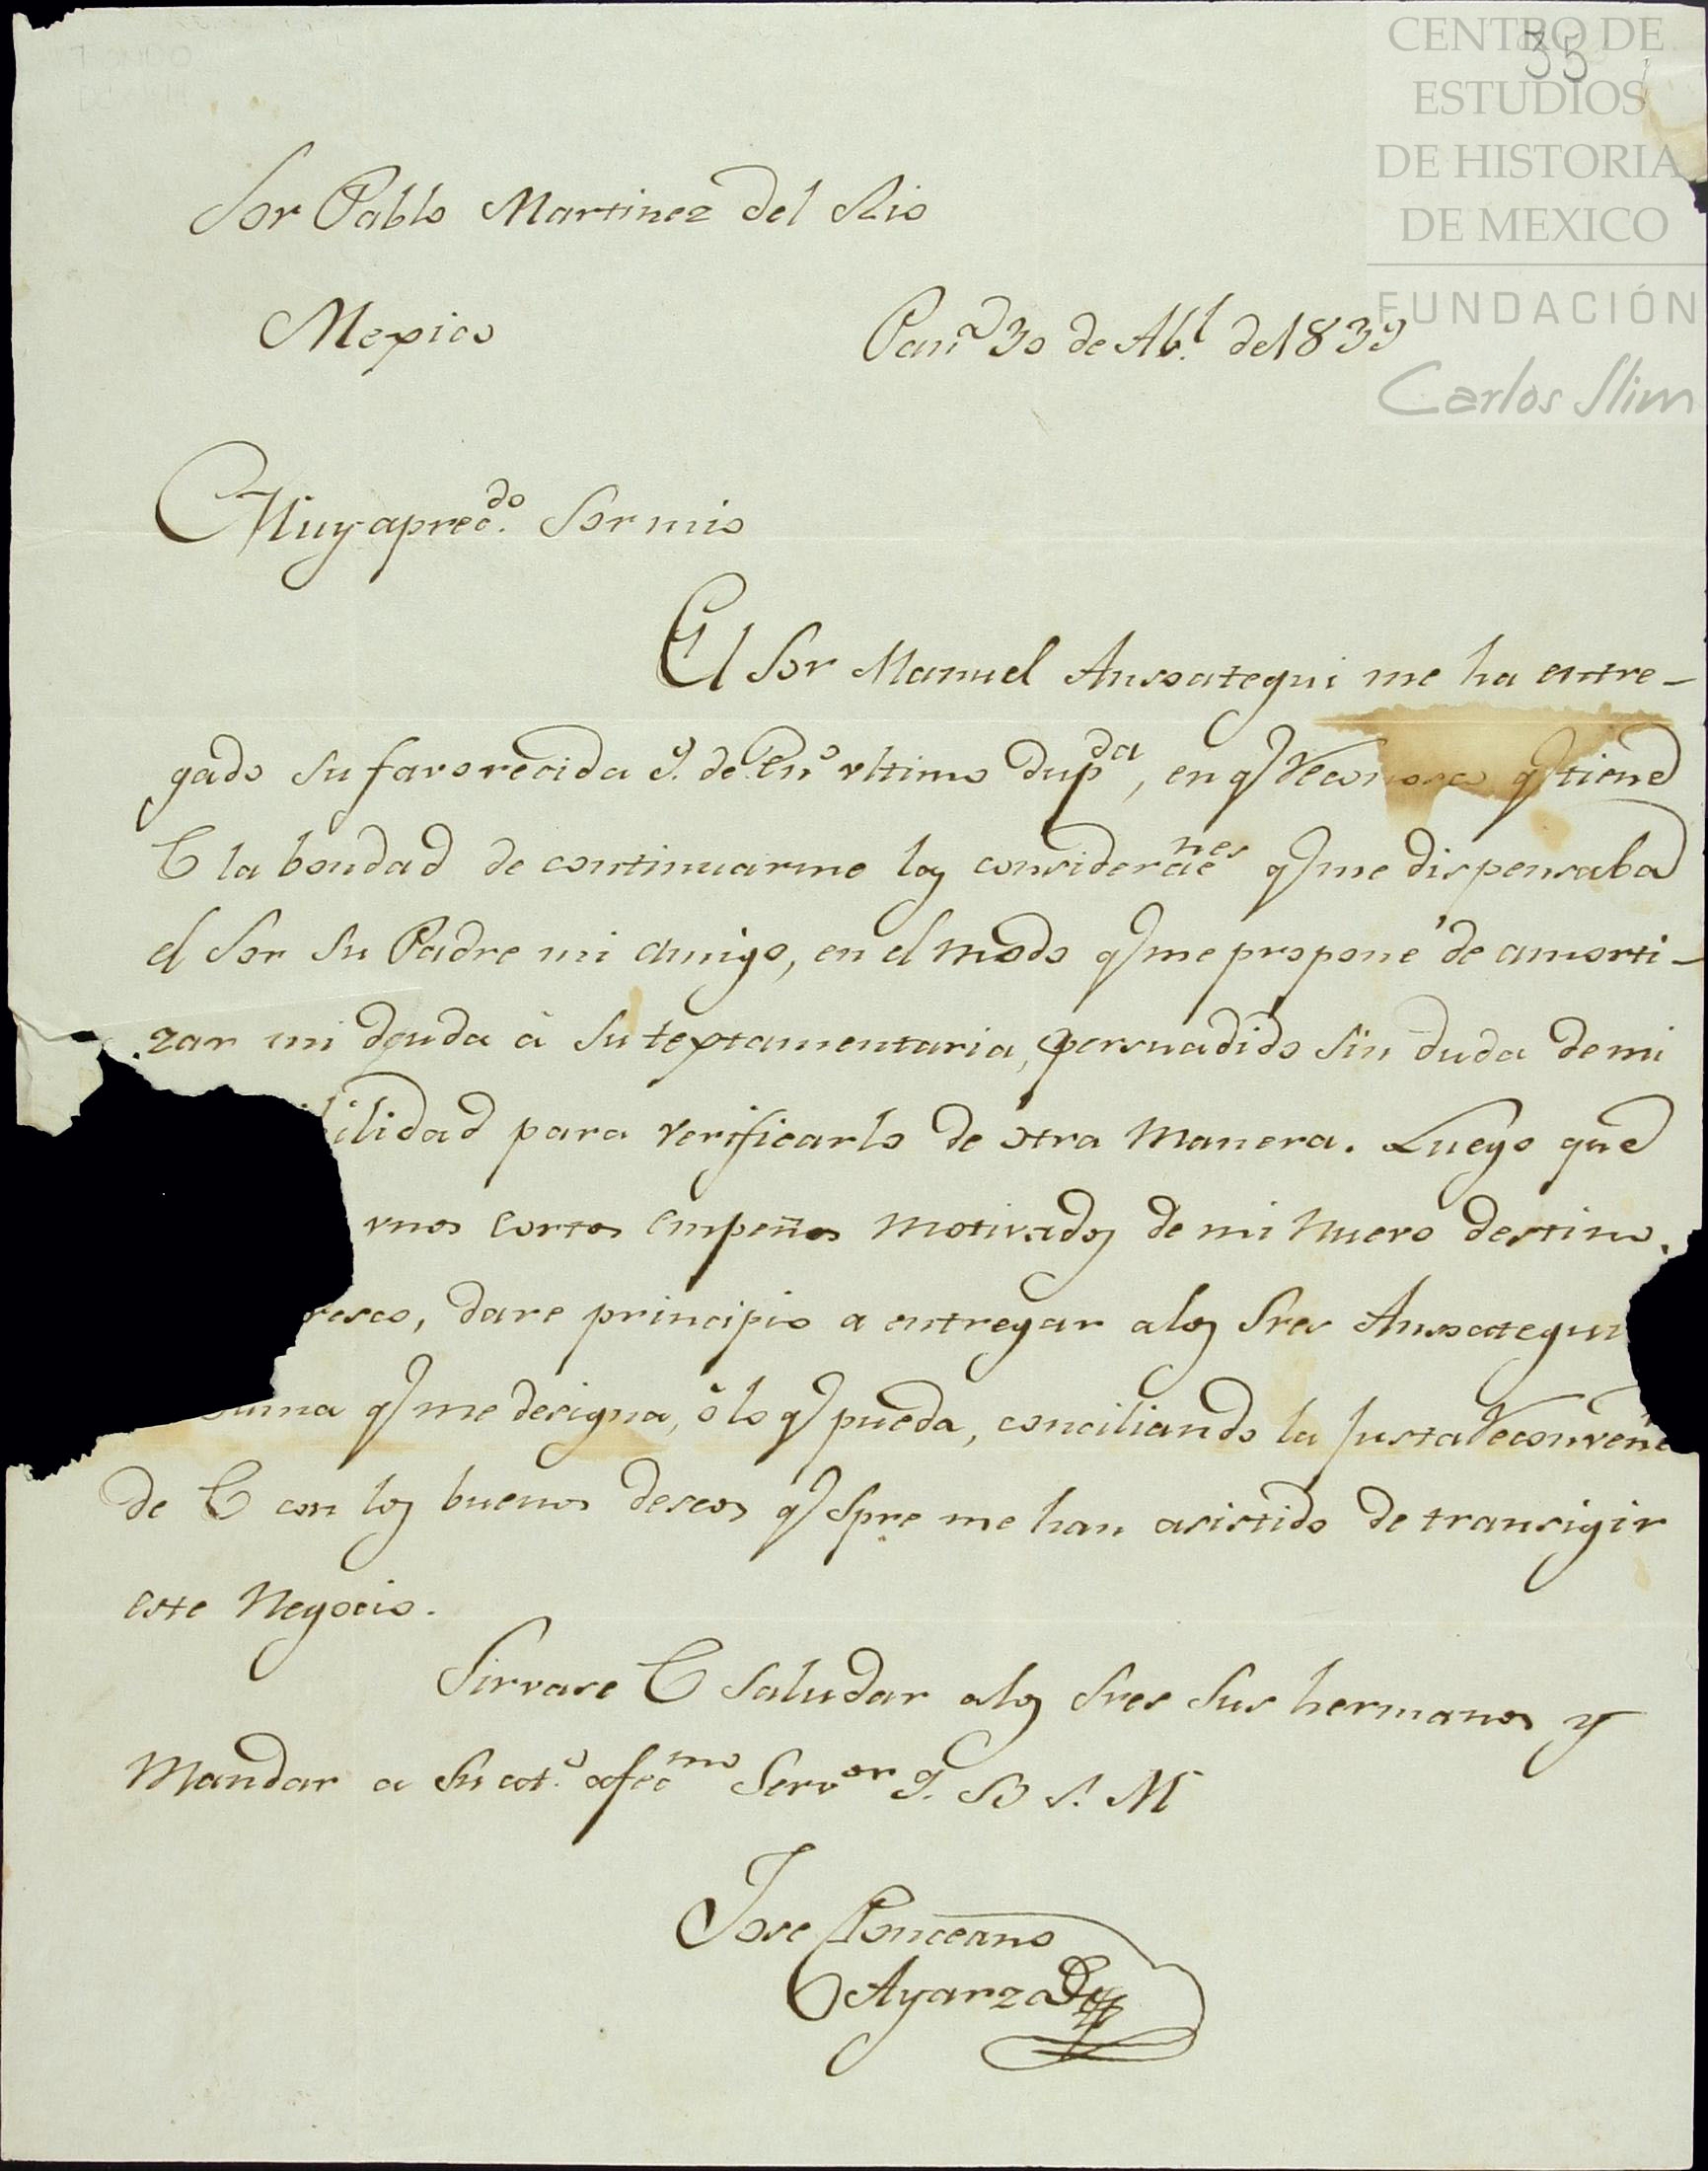 CENTRO DE
ESTUDIOS
DE HISTORIA
DE MEXICO
FUNDACIÓN
Carlos Slim
35
Sor Pablo Martinez del Rio
Mexico
Pan.á 30 de Ab.l de 1839
Muy aprec.do Sor mio
El Sor Manuel Anssategui me ha entre-
gado su favorecida 9. de En.o vltimo dup.da, en q.e Reconosco q.e tiene
V la bondad de continuarme los considerac.nes q.e me dispensaba
el Sor Su Padre mi amigo, en el modo q.e me propone de amorti-
zar mi deuda á Su textamentaria, persuadido sin duda de mi
ilidad para verificarlo de otra Manera. Luego que
vnos cortos empeños motivados de mi Nuevo destino.
resco, dare principio a entregar a los Sres Anssategui
suma q.e me designa, ó lo q.e pueda, conciliando la Justa Reconvenc
de V con los buenos deseos q.e Spre me han asistido de transigir
este Negocio.
Sirvase V Saludar a los Sres Sus hermanos y
Mandar a Su at.o afec.mo Serv.or q. B S. M
Jose Ponceano
Ayarza